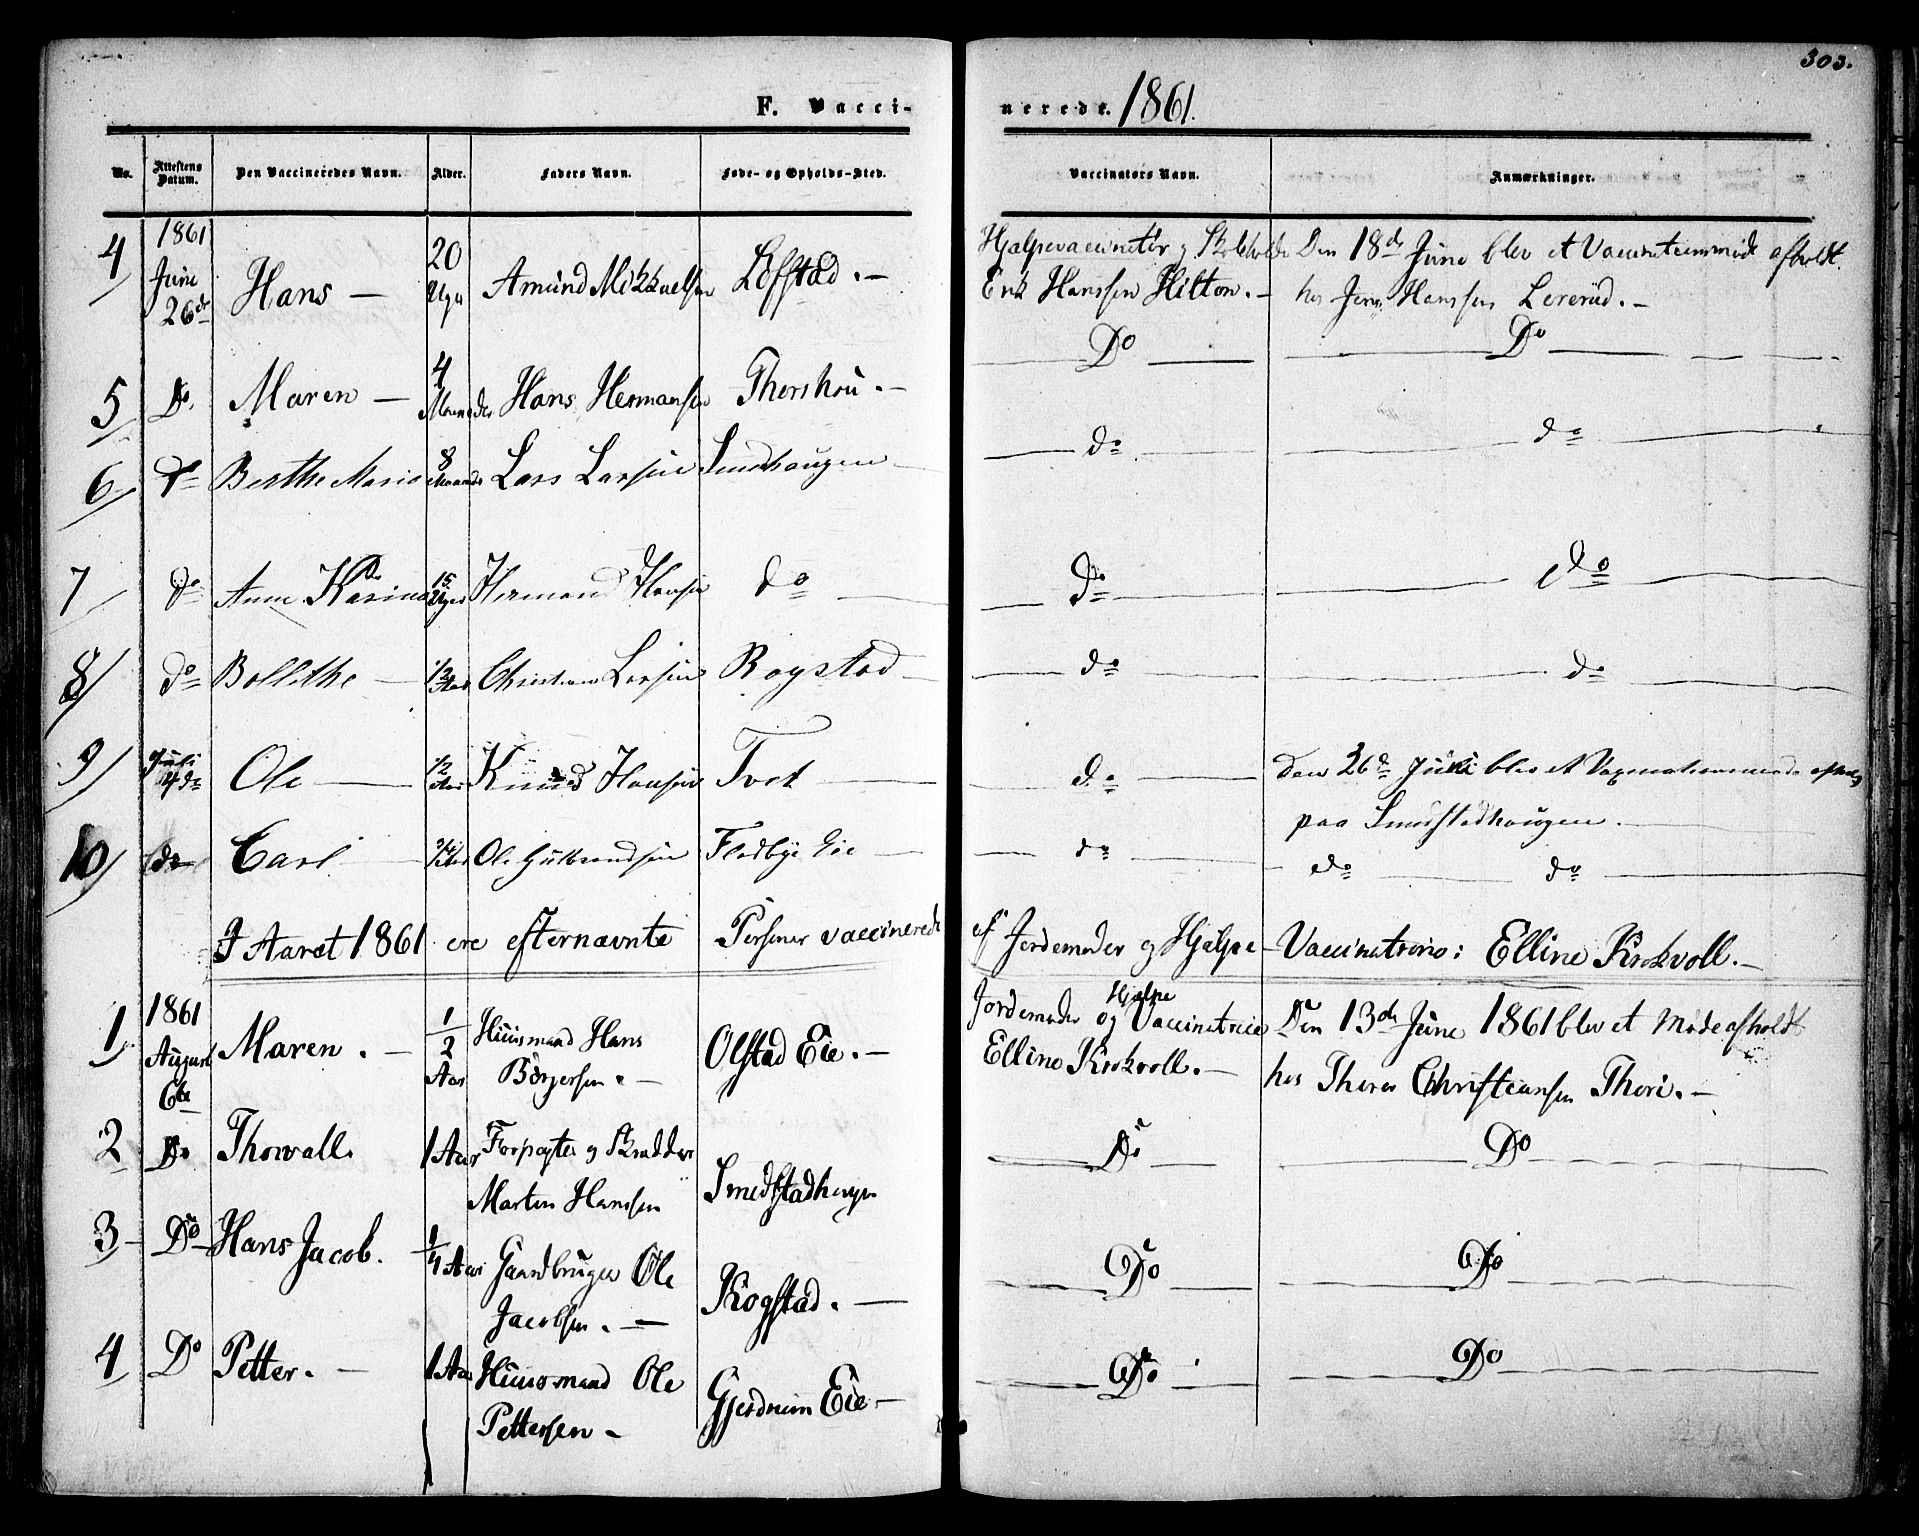 303.
F. Vaccinerede. 1861.
No. Attestens Datum. Den Vaccineredes Navn. Alder. Faders Navn. Føde- og Opholds-Sted. Vaccinators Navn. Anmærkninger.
4 1861 Juni 26de Hans — 20 Uger Amund Mikkaelsen Lofstad. — Hjælpevaccinatør og Skoleholder Den 18de June blev et Vaccinationsmøde afholdt.
Erik Hanssen Hilton. — hos Jens Hanssen Lererud. —
5 Do. Maren — 4 Maaneder Hans Hermansen Thorshou. — Do Do
6 do Berthe Marie 8 Maaneder Lars Larsen Smedhaugen do do
7 do Anne Karine 15 Uger Hermand Hansen do do do
8 do Bollethe 1/2 Aar Christian Larsen Rogstad do do
9 Juli 4de Ole 1/2 Aar Knud Hansen Tvet do Den 26de Juni blev et Vaxinationsmøde afholdt
paa Smedstadhaugen.
10 do Carl 3/4 Aar Ole Gulbrandsen Flodbye Eie do do do
I Aaret 1861 ere efternævnte Personer vaccinerede af Jordemoder og Hjelpe-Vaccinatrice: Elline Krokvoll. —
1 1861 August 6te Maren. — 1/2 Aar Huusmand Hans Börgersen. — Olstad Eie. — Jordemoder og Hjelpe Vaccinatrice Den 13de June 1861 blev et Møde afholdt
Elline Krokvoll. — hos Thores Christiansen Thori. —
2 Do Thorvall. 1 Aar Forpagter og Skrædder Martin Hanssen Smedstadhaugen Do Do
3 Do Hans Jacob. 1/4 Aar Gaardbruger Ole Jacobsen. — Kogstad. — Do Do
4 Do Petter. — 1 Aar Huusmand Ole Pettersen — Gjerdrum Eie — Do Do